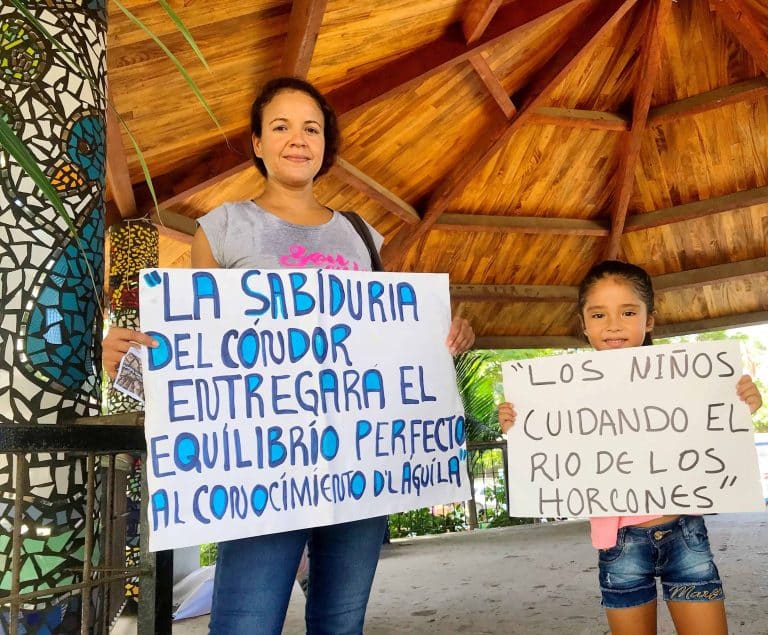 "LA SABÍDURIA
DEL CÓNDOR
ENTREGARÁ EL
EQUÍLIBRÍO PERFECTO
AL CONOCÍMÍENTO D'L ÁGUÍLA"
"LOS NIÑOS
CUIDANDO EL
RIO DE LOS
HORCONES"